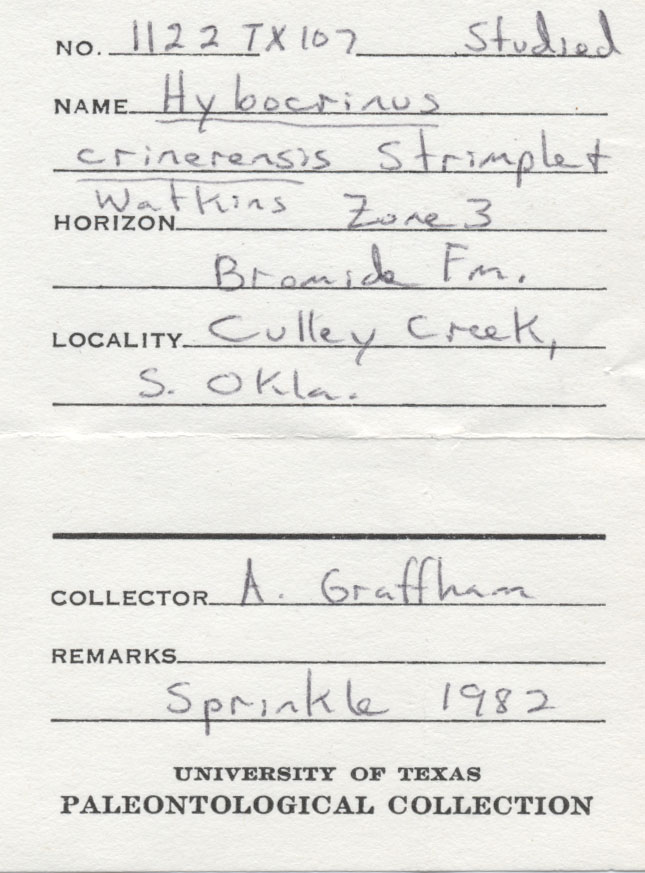 NO. 1122 TX 107 Studied
NAME Hybocrinus
crinerensis Strimple +
Watkins
HORIZON Zone 3
Bromide Fm.
LOCALITY Culley Creek,
S. Okla.
COLLECTOR A. Graffham
REMARKS
Sprinkle 1982
UNIVERSITY OF TEXAS
PALEONTOLOGICAL COLLECTION